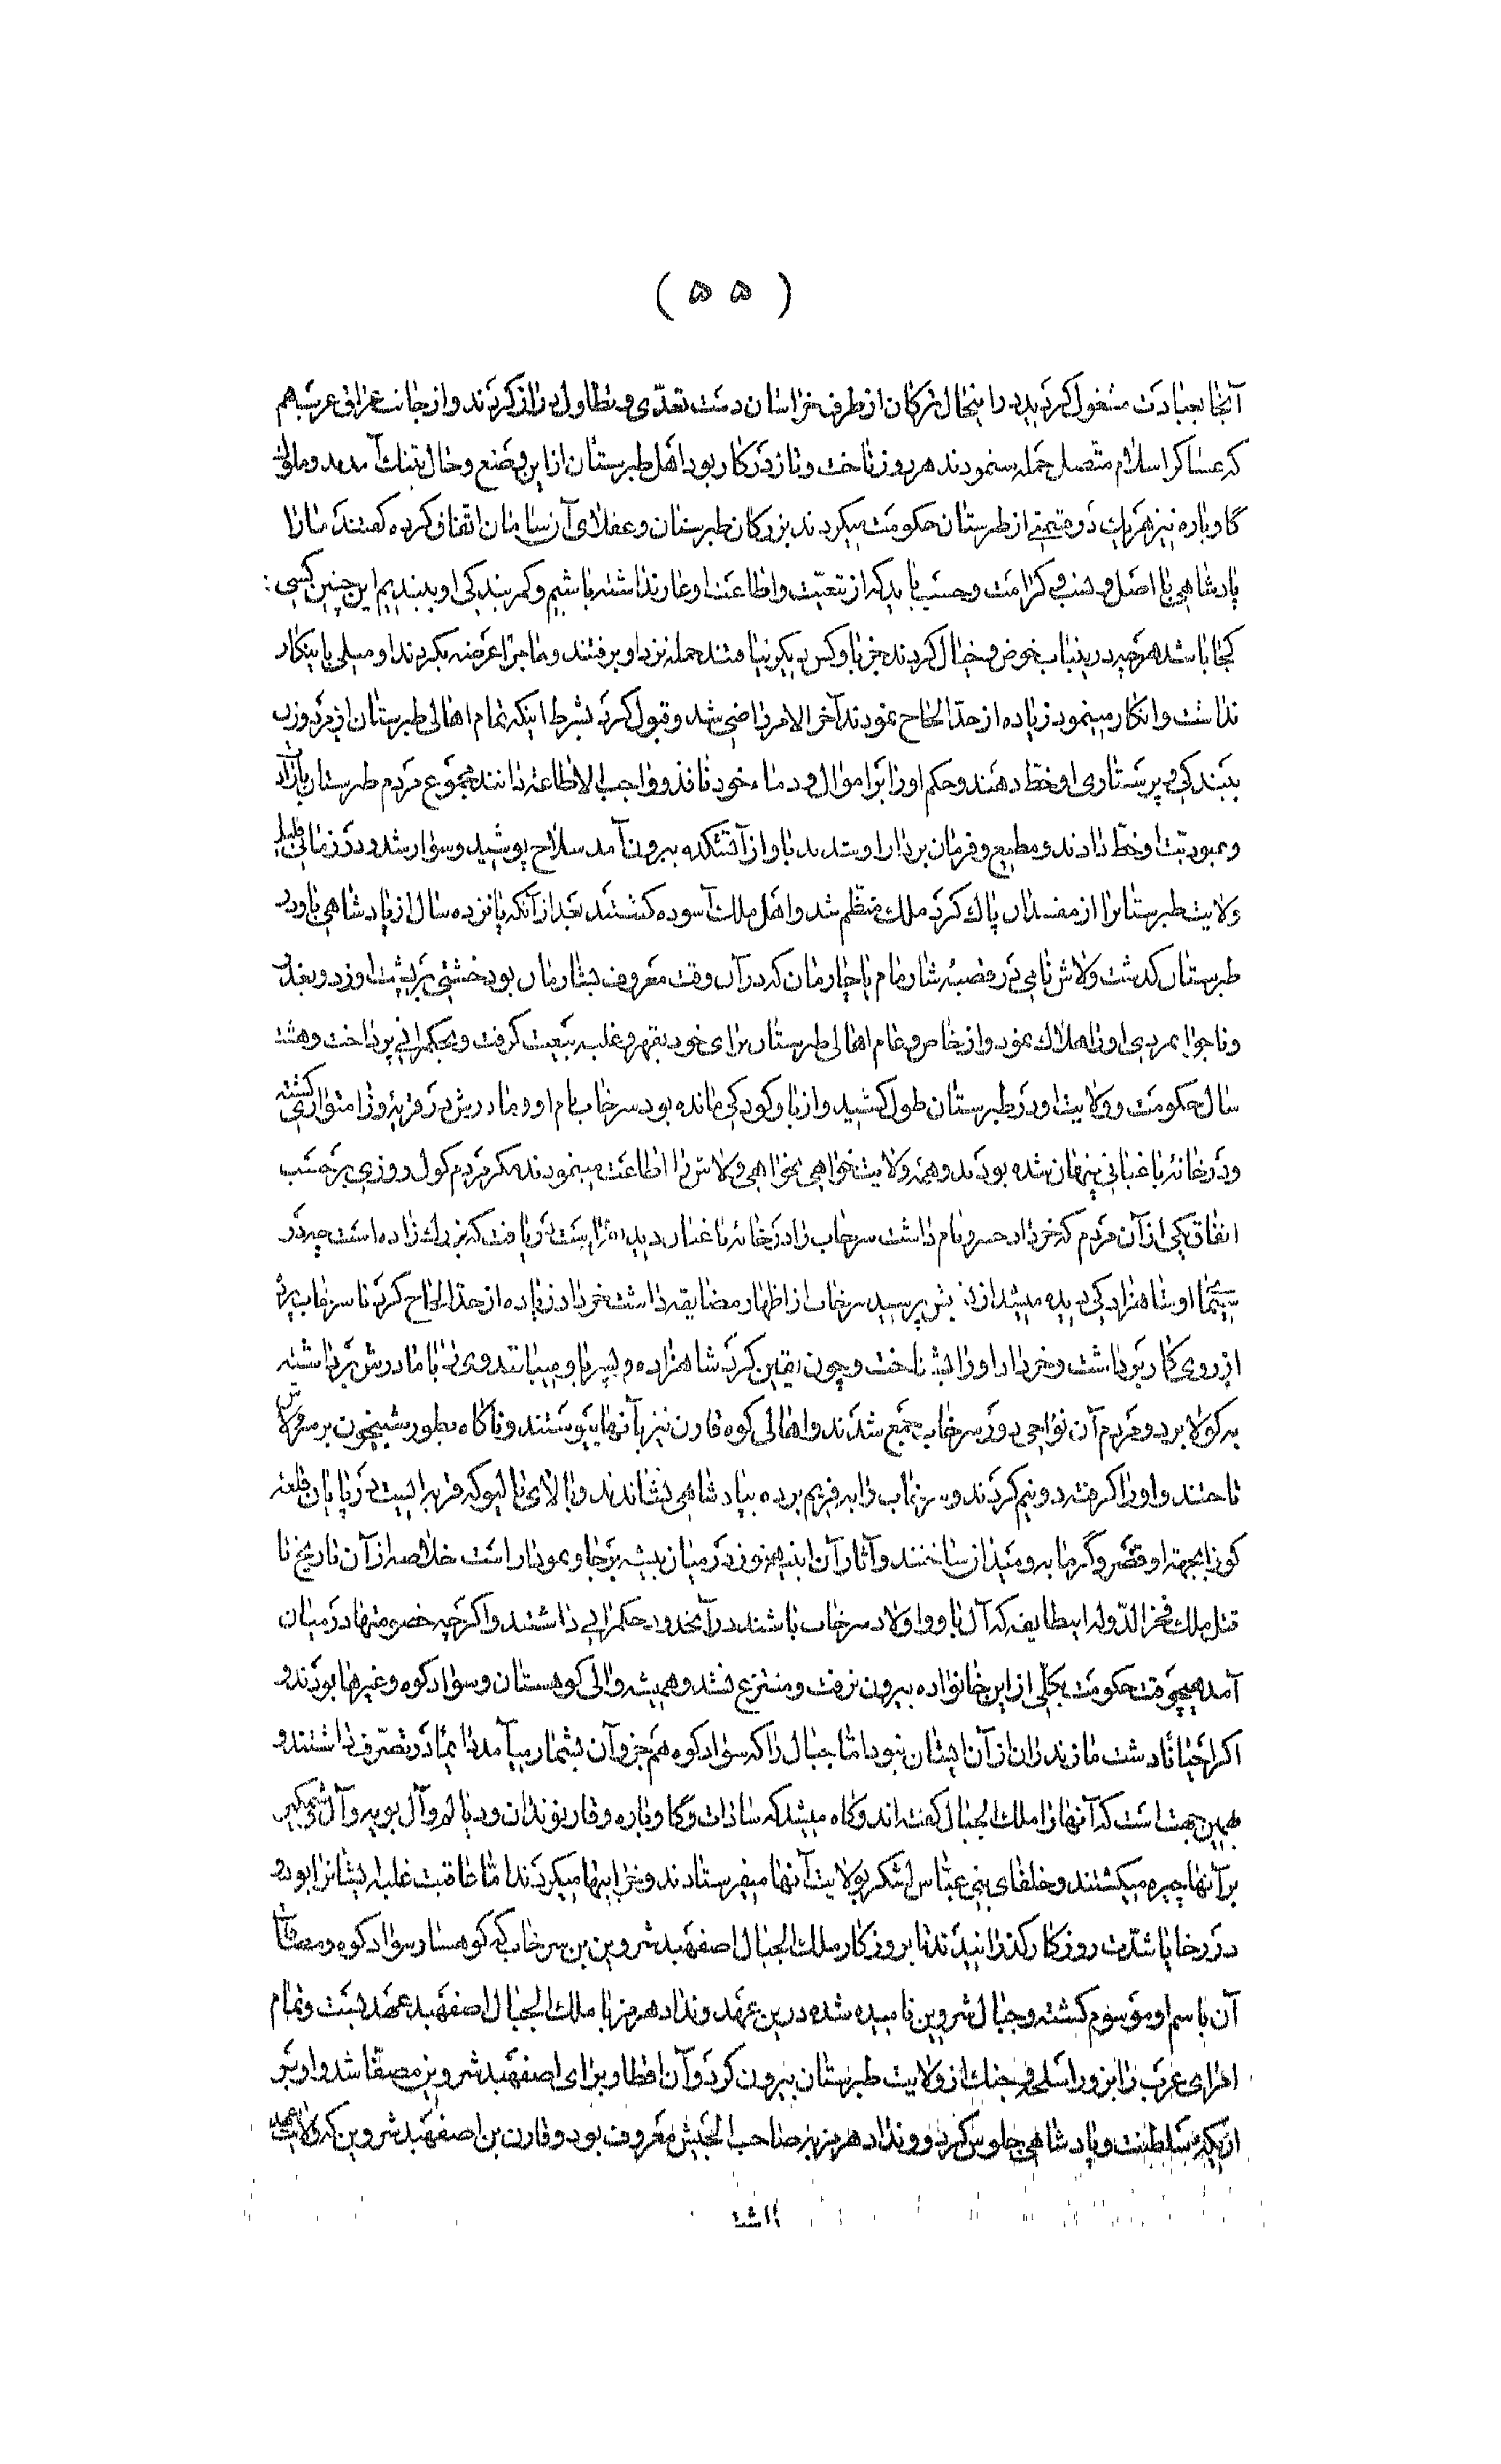 ( ۵۵ )
آنجا بعبادت مشغول گردید در اینحال ترکان از طرف خراسان دست تعدّی و تطاول دراز کردند و از جانب عراق عرب هم
که عساکر اسلام متّصل حمله مینمودند هر روز تاخت و تاز در کار بود اهل طبرستان از این وضع و حال بتنک آمدند و ملوک
کاوباره نیز هر یک در قسمتی از طبرستان حکومت میکردند بزرکان طبرستان و عقلای آن سامان اتّفاق کرده کفتند ما را
پادشاهی با اصل و نسب و کرامت و حسب باید که از تبعیّت و اطاعت او عار نداشته باشیم و کمر بندکی او ببندیم این چنین کسی
کجا باشد هر چه درینباب خوض و خیال کردند جز باو کس دیگر نیافتند جمله نزد او برفتند و ماجرا عرضه بکردند او میلی باینکار
نداشت و انکار مینمود زیاده از حدّ الحاح نمودند آخر الامر راضی شد و قبول کرد بشرط اینکه تمام اهالی طبرستان از مرد و زن
ببندکی و پرستاری او خطّ دهند و حکم او را بر اموال و دماء خود نافذ و واجب الاطاعة دانند مجموع مردم طبرستان
و عبودیّت او خطّ دادند و مطیع و فرمان بردار او شدند باو از آتشکده بیرون آمد سلاح پوشید و سوار شد و در زمانی قلیل
ولایت طبرستانرا از مفسدان پاک کرد ملک منظّم شد و اهل ملک آسوده کشتند بعد از آنکه پانزده سال از پادشاهی باو در
طبرستان کذشت ولاش نامی در قصبهٔ شارمام یا چارمان که در آن وقت معروف بشارمان بود خشتی بر پشت او زد و بغدر
و ناجوانمردی او را هلاک نمود و از خاص و عام اهالی طبرستان برای خود بقهر و غلبه بیعت کرفت و بحکمرانی پرداخت و هشت
سال حکومت و ولایت او در طبرستان طول کشید و از باو کودکی مانده بود سرخاب نام او و مادرش در قریهٔ وزا متواری کشته
و در خانهٔ باغبانی پنهان شده بودند و همهٔ ولایت خواهی نخواهی ولاش را اطاعت مینمودند مکر مردم کول روزی بر حسب
اتفاق یکی از آن مردم که خرداد خسرو نام داشت سرخاب را در خانهٔ باغبان دید بفراست دریافت که بزرک زاده است چه در
سیمای او شاهزادکی دیده میشد از پرسید سرخاب از اظهار مضایقه داشت خرداد زیاده از حدّ الحاح کرد تا سرخاب پرده
از روی کار برداشت و خرداد او را بشناخت و چون یقین کرد شاهزاده و پسر باو میباشد وی را با مادرش برداشته
به کولا برد و مردم آن نواحی دور سرخاب جمع شدند و اهالی کوه قارن نیز بآنها پیوستند و ناکاه بطور شبیخون بر سر ولاش
تاختند و او را کرفته دو نیم کردند و سرخاب را به فریم برده بپادشاهی نشاندند و بالای تالیو که قریه ایست در پایان قلعه
کوزا بجهة او قصر و گرمابه و میدان ساختند و آثار آن ابنیه هنوز در میان بیشه برجا و نمودار است خلاصه از آن تاریخ تا
قتل ملک فخر الدّوله اینطایفه که آل باو و اولاد سرخاب باشند در آنحدود حکمرانی داشتند و اکر چه خصومتها در میان
آمد هیچوقت حکومت بکلّی از این خانواده بیرون نرفت و منتزع نشد و همیشه والی کوهستان و سوادکوه و غیرها بودند و
اکر احیاناً دشت مازندران از آن ایشان نبود امّا جبال را که سوادکوه هم جزو آن بشمار میآمد دایماً در تصرّف داشتند و
بهمین جهت است که آنها را ملک الجبال کفته اند و کاه میشد که سادات و کاوباره و قارنوندان و دیالم و آل بویه و آل وشمکیر
بر آنها چیره میکشتند و خلفای بنی عبّاس لشکر بولایت آنها میفرستادند و خرابیها میکردند امّا عاقبت غلبه ایشانرا بود و
در رخا یا شدّت روزکار کذرانیدند تا بروزکار ملک الجبال اصفهبد شروین بن سرخاب که کوهسار سوادکوه و مضافات
آن باسم او موسوم کشته و جبال شروین نامیده شده درین عهد ونداد هرمز با ملک الجبال اصفهبد عهد ببست و تمام
امرای عرب را بزور اسلحه و جنک از ولایت طبرستان بیرون کرد و آن اقطاع برای اصفهبد شروین مصفّا شد و او بر
اریکهٔ سلطنت و پادشاهی جلوس کرد و ونداد هرمز بر صاحب الجیش معروف بود و قارن بن اصفهبد شروین که ولایت عهد
داشت